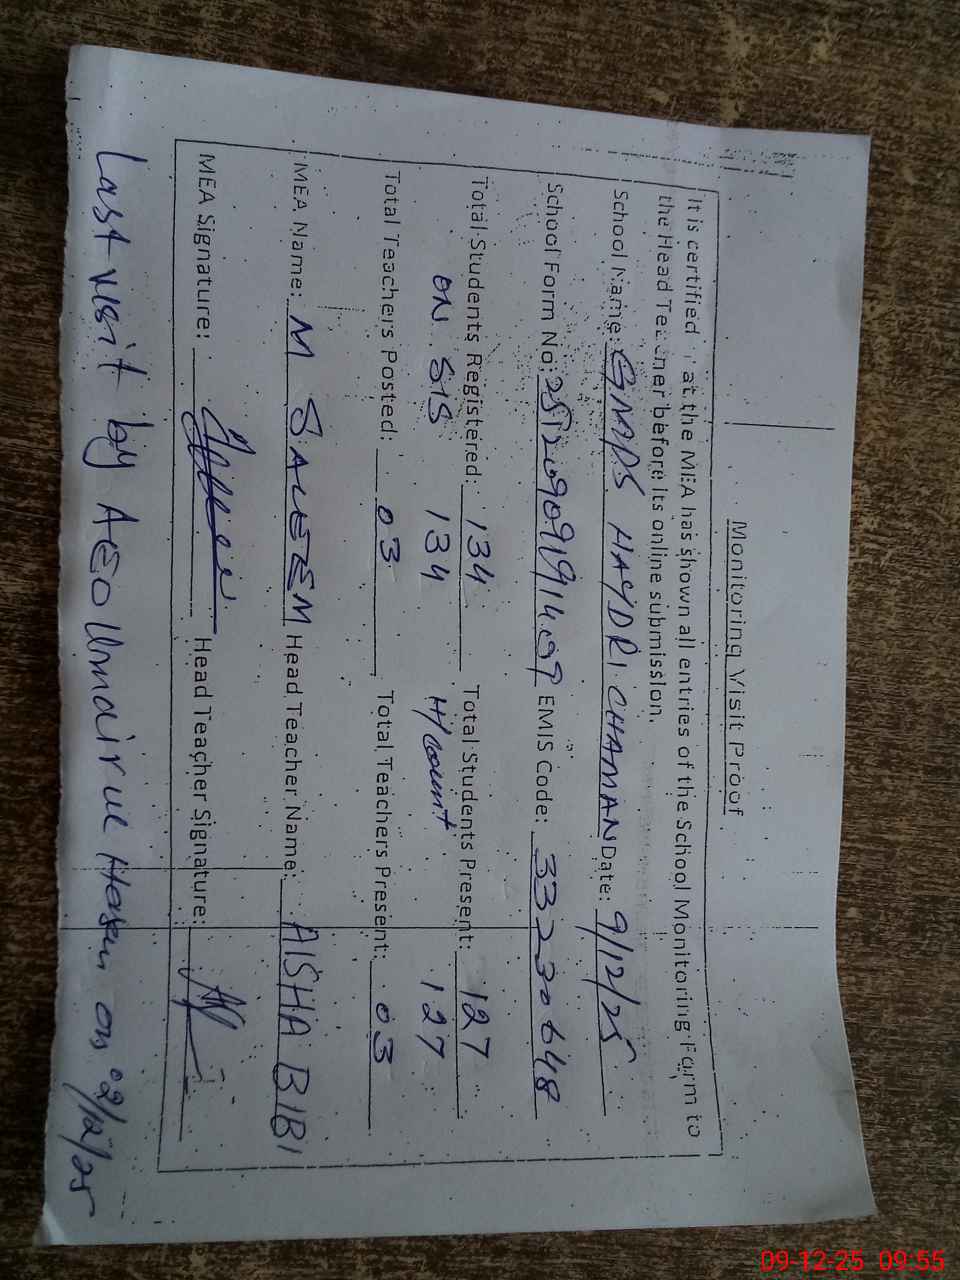 Monitoring Visit Proof
It is certified at the MEA has shown all entries of the School Monitoring Form to
the Head Teacher before its online submission.
School Name: GMPS HAYDRI CHAMAN Date: 9/12/25
School Form No: EMIS Code: 33230648
Total Students Registered: 134 Total Students Present: 127
ON SIS 134 H/count 127
Total Teachers Posted: 03 Total Teachers Present: 03
MEA Name: M SALEEM Head Teacher Name: AISHA BIBI
MEA Signature: Head Teacher Signature:
Last visit by AEO Umair ul Hasan on 02/12/25
09-12-25 09:55